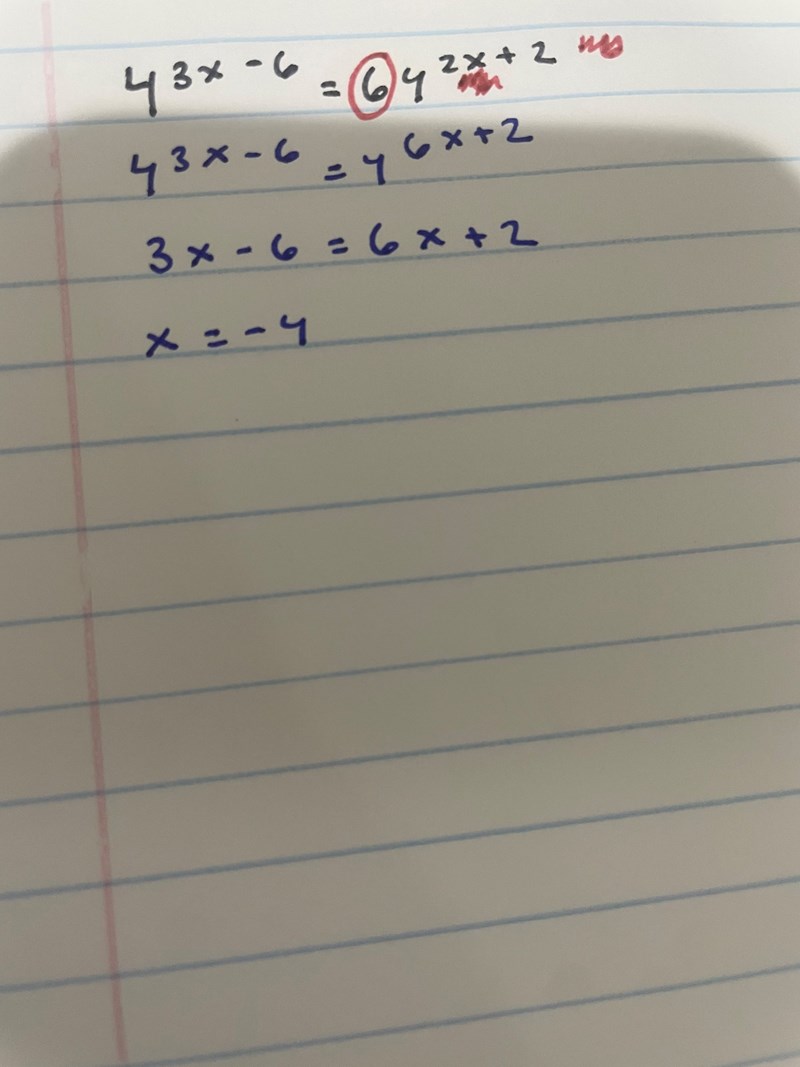 4^{3x-6} = 64^{2x+2}
4^{3x-6} = 4^{6x+2}
3x - 6 = 6x + 2
x = -4